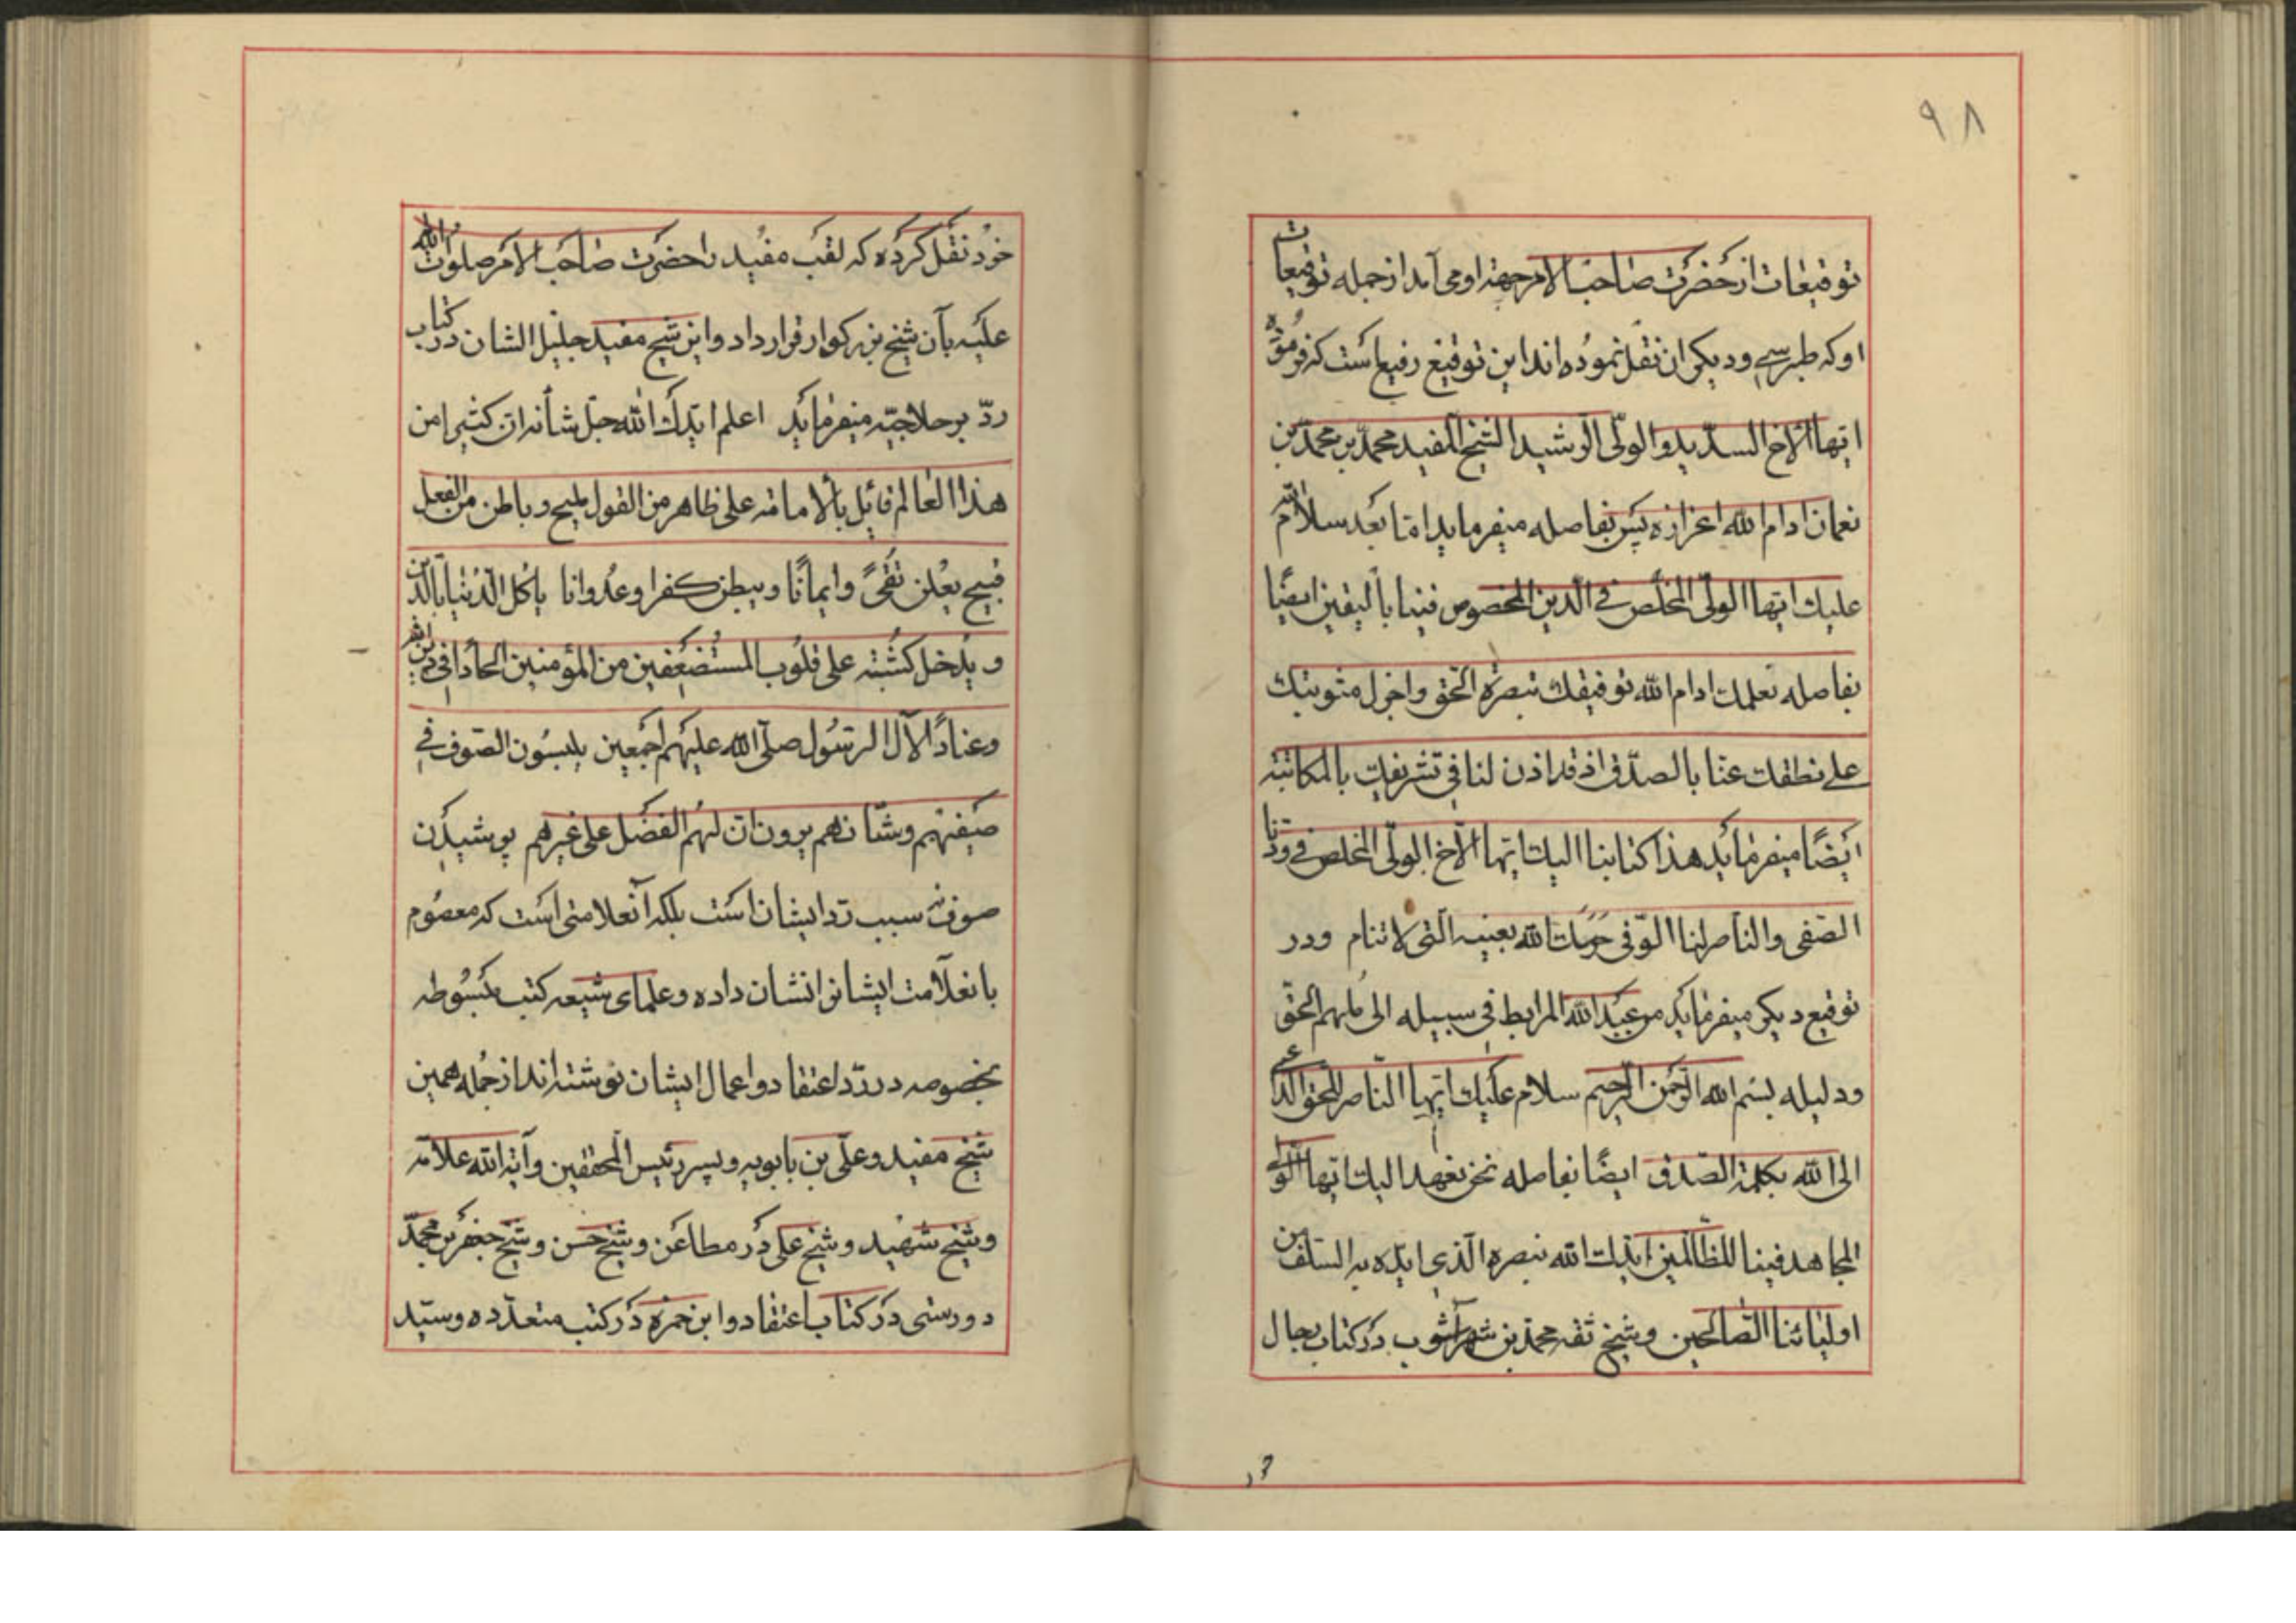 ٩٨
توقیعات از حضرت صاحب الامر جهة او می آمد از جمله توقیعات
او که طبرسی و دیکران نقل نموده اند این توقیع رفیع است که فرموده
ایها الاخ السدید والولی الرشید الشیخ المفید محمد بن محمد بن
نعمان ادام الله اعزازه پس بفاصله میفرماید اما بعد سلام الله
علیك ایها الولی المخلص فی الدین المخصوص فینا بالیقین ایضًا
بفاصله نعلمك ادام الله توفیقك بنصرة الحق واجزل مثوبتك
علی نطقك عنا بالصدق اذ قد اذن لنا فی تشریفك بالمکاتبة
ایضًا میفرماید هذا کتابنا الیك ایها الاخ الولی المخلص فی ودنا
الصفی والناصر لنا الوفی حرسك الله بعینه التی لا تنام ودر
توقیع دیکر میفرماید من عبد الله المرابط فی سبیله الی ملهم الحق
ودلیله بسم الله الرحمن الرحیم سلام علیك ایها الناصر للحق الداعی
الی الله بکلمة الصدق ایضًا بفاصله نحن نعهد الیك ایها الولی
المجاهد فینا للظالمین ایدك الله بنصره الذی ایده به السلف من
اولیائنا الصالحین وشیخ ثقه محمد بن شهر آشوب در کتاب رجال
خود نقل کرده که لقب مفید را حضرت صاحب الامر صلوات الله
علیه بآن شیخ بزرکوار قرار داد واین شیخ مفید جلیل الشان در کتاب
ردّ بر حلاجیّه میفرماید اعلم ایدك الله جل شأنه ان کثیرا من
هذا العالم قائل بالامامة علی ظاهر من القول ملیح وباطن من الفعل
قبیح یعلن تقیً وایمانًا ویبطن کفرا وعدوانا یاکل الدنیا بالدین
ویدخل کشبته علی قلوب المستضعفین من المؤمنین الحادا فی دین الله
وعنادًا لآل الرسول صلی الله علیهم اجمعین یلبسون الصوف فی
صیفهم وشتائهم یرون ان لهم الفضل علی غیرهم پوشیدن
صوف نه سبب رد ایشان است بلکه آنعلامتی است که معصوم
بانعلامت ایشانرا نشان داده وعلمای شیعه کتب مبسوطه
بخصوصه در ردّ اعتقاد واعمال ایشان نوشته اند از جمله همین
شیخ مفید وعلی بن بابویه وپسر رئیس المحققین وآیة الله علامه
وشیخ شهید وشیخ علی در مطاعن وشیخ حسن وشیخ جعفر بن محمد
دوریستی در کتاب اعتقاد وابن حمزه در کتب متعدده وسید